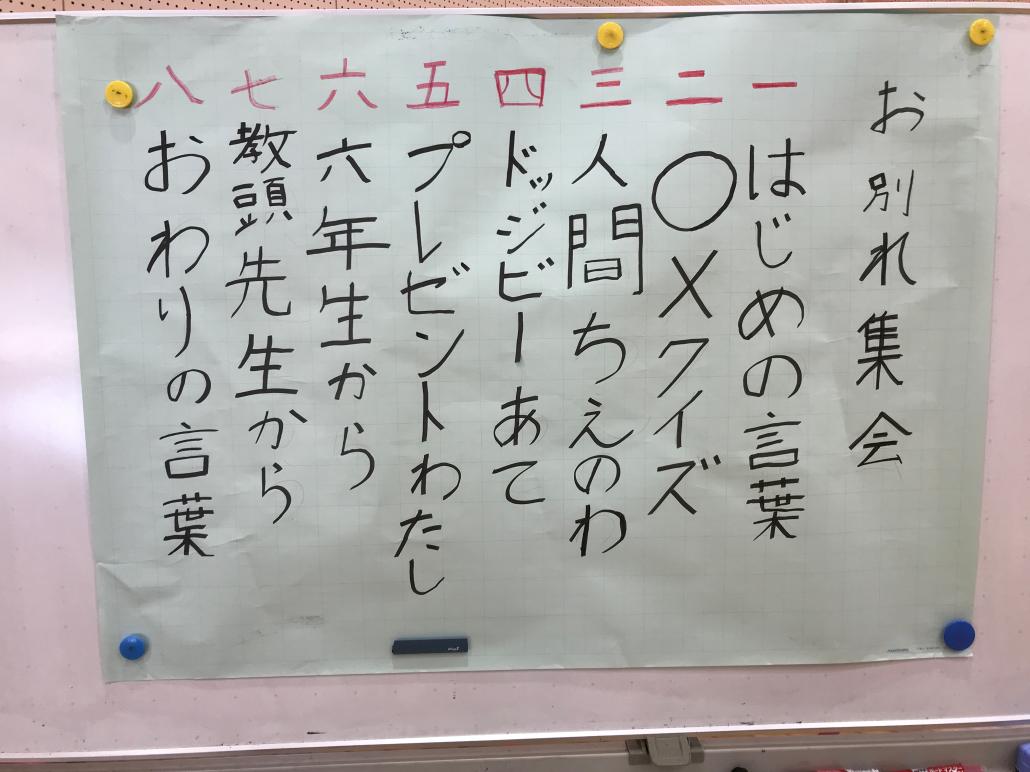 お別れ集会
一 はじめの言葉
二 ○×クイズ
三 人間ちえのわ
四 ドッジビーあて
五 プレゼントわたし
六 六年生から
七 教頭先生から
八 おわりの言葉